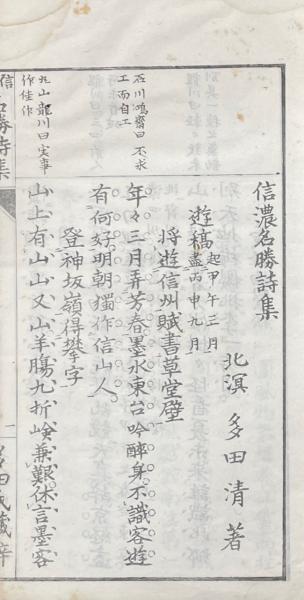 信濃名勝詩集
北溟 多田清著
遊稿起甲午三月盡丙申九月
將遊信州賦書草堂壁
年々三月弄芳春墨水東台吟醉身不識客遊
有何好明朝獨作信山人
登神坂嶺得攀字
山上有山山又山羊腸九折嶮兼艱休言墨客
石川鴻齋曰不求
工而自工
龍川曰實事
作佳作
名勝詩集
一
多田氏藏梓